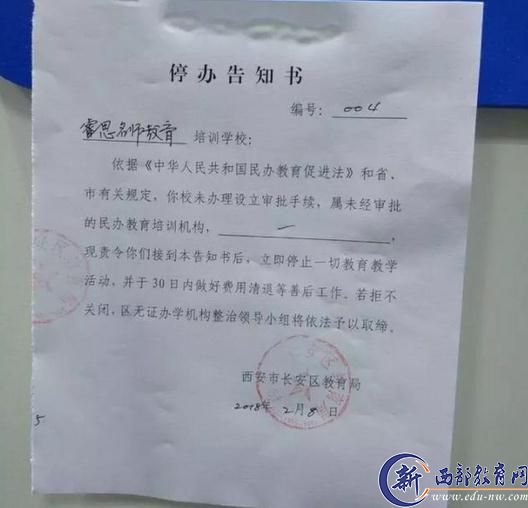 停办告知书
编号：004
睿思名师教育 培训学校：
依据《中华人民共和国民办教育促进法》和省、
市有关规定，你校未办理设立审批手续，属未经审批
的民办教育培训机构，一，
现责令你们接到本告知书后，立即停止一切教育教学
活动，并于30日内做好费用清退等善后工作。若拒不
关闭，区无证办学机构整治领导小组将依法予以取缔。
西安市长安区教育局
2018年2月8日
5
新 西部教育网
www.edu-nw.com